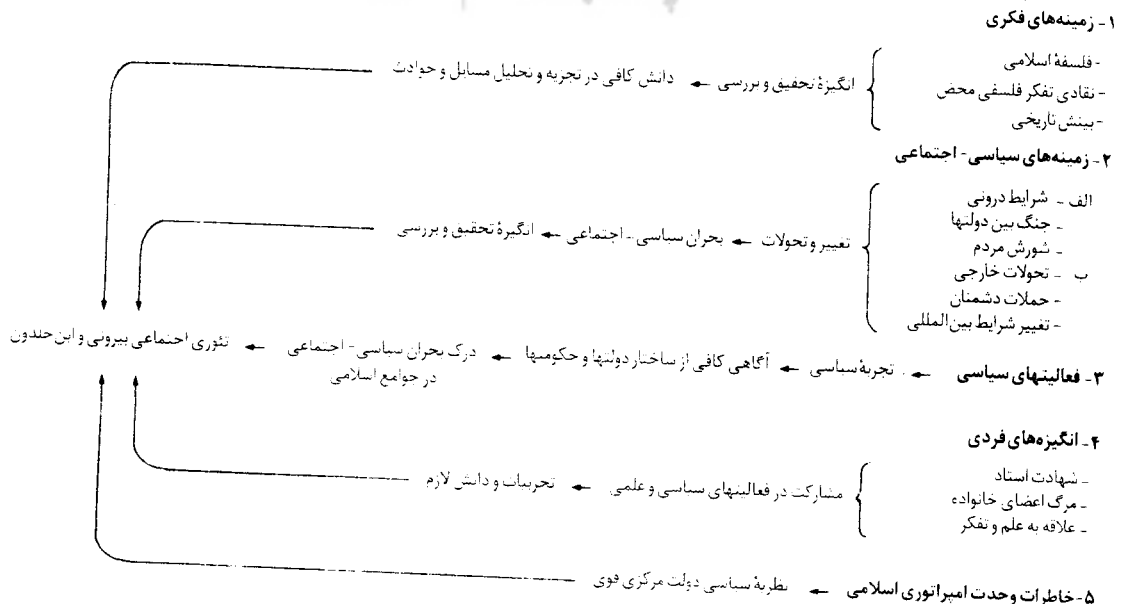 ۱- زمینه‌های فکری
- فلسفهٔ اسلامی
- نقادی تفکر فلسفی محض
- بینش تاریخی
انگیزهٔ تحقیق و بررسی ← دانش کافی در تجزیه و تحلیل مسایل و حوادث
۲- زمینه‌های سیاسی- اجتماعی
الف - شرایط درونی
- جنگ بین دولتها
- شورش مردم
ب - تحولات خارجی
- حملات دشمنان
- تغییر شرایط بین‌المللی
تغییر و تحولات ← بحران سیاسی - اجتماعی ← انگیزهٔ تحقیق و بررسی
۳- فعالیتهای سیاسی ← تجربهٔ سیاسی ← آگاهی کافی از ساختار دولتها و حکومتها ← درک بحران سیاسی- اجتماعی ← تئوری اجتماعی بیرونی و ابن خلدون
در جوامع اسلامی
۴- انگیزه‌های فردی
- شهادت استاد
- مرگ اعضای خانواده
- علاقه به علم و تفکر
مشارکت در فعالیتهای سیاسی و علمی ← تجربیات و دانش لازم
۵- خاطرات وحدت امپراتوری اسلامی ← نظریهٔ سیاسی دولت مرکزی قوی